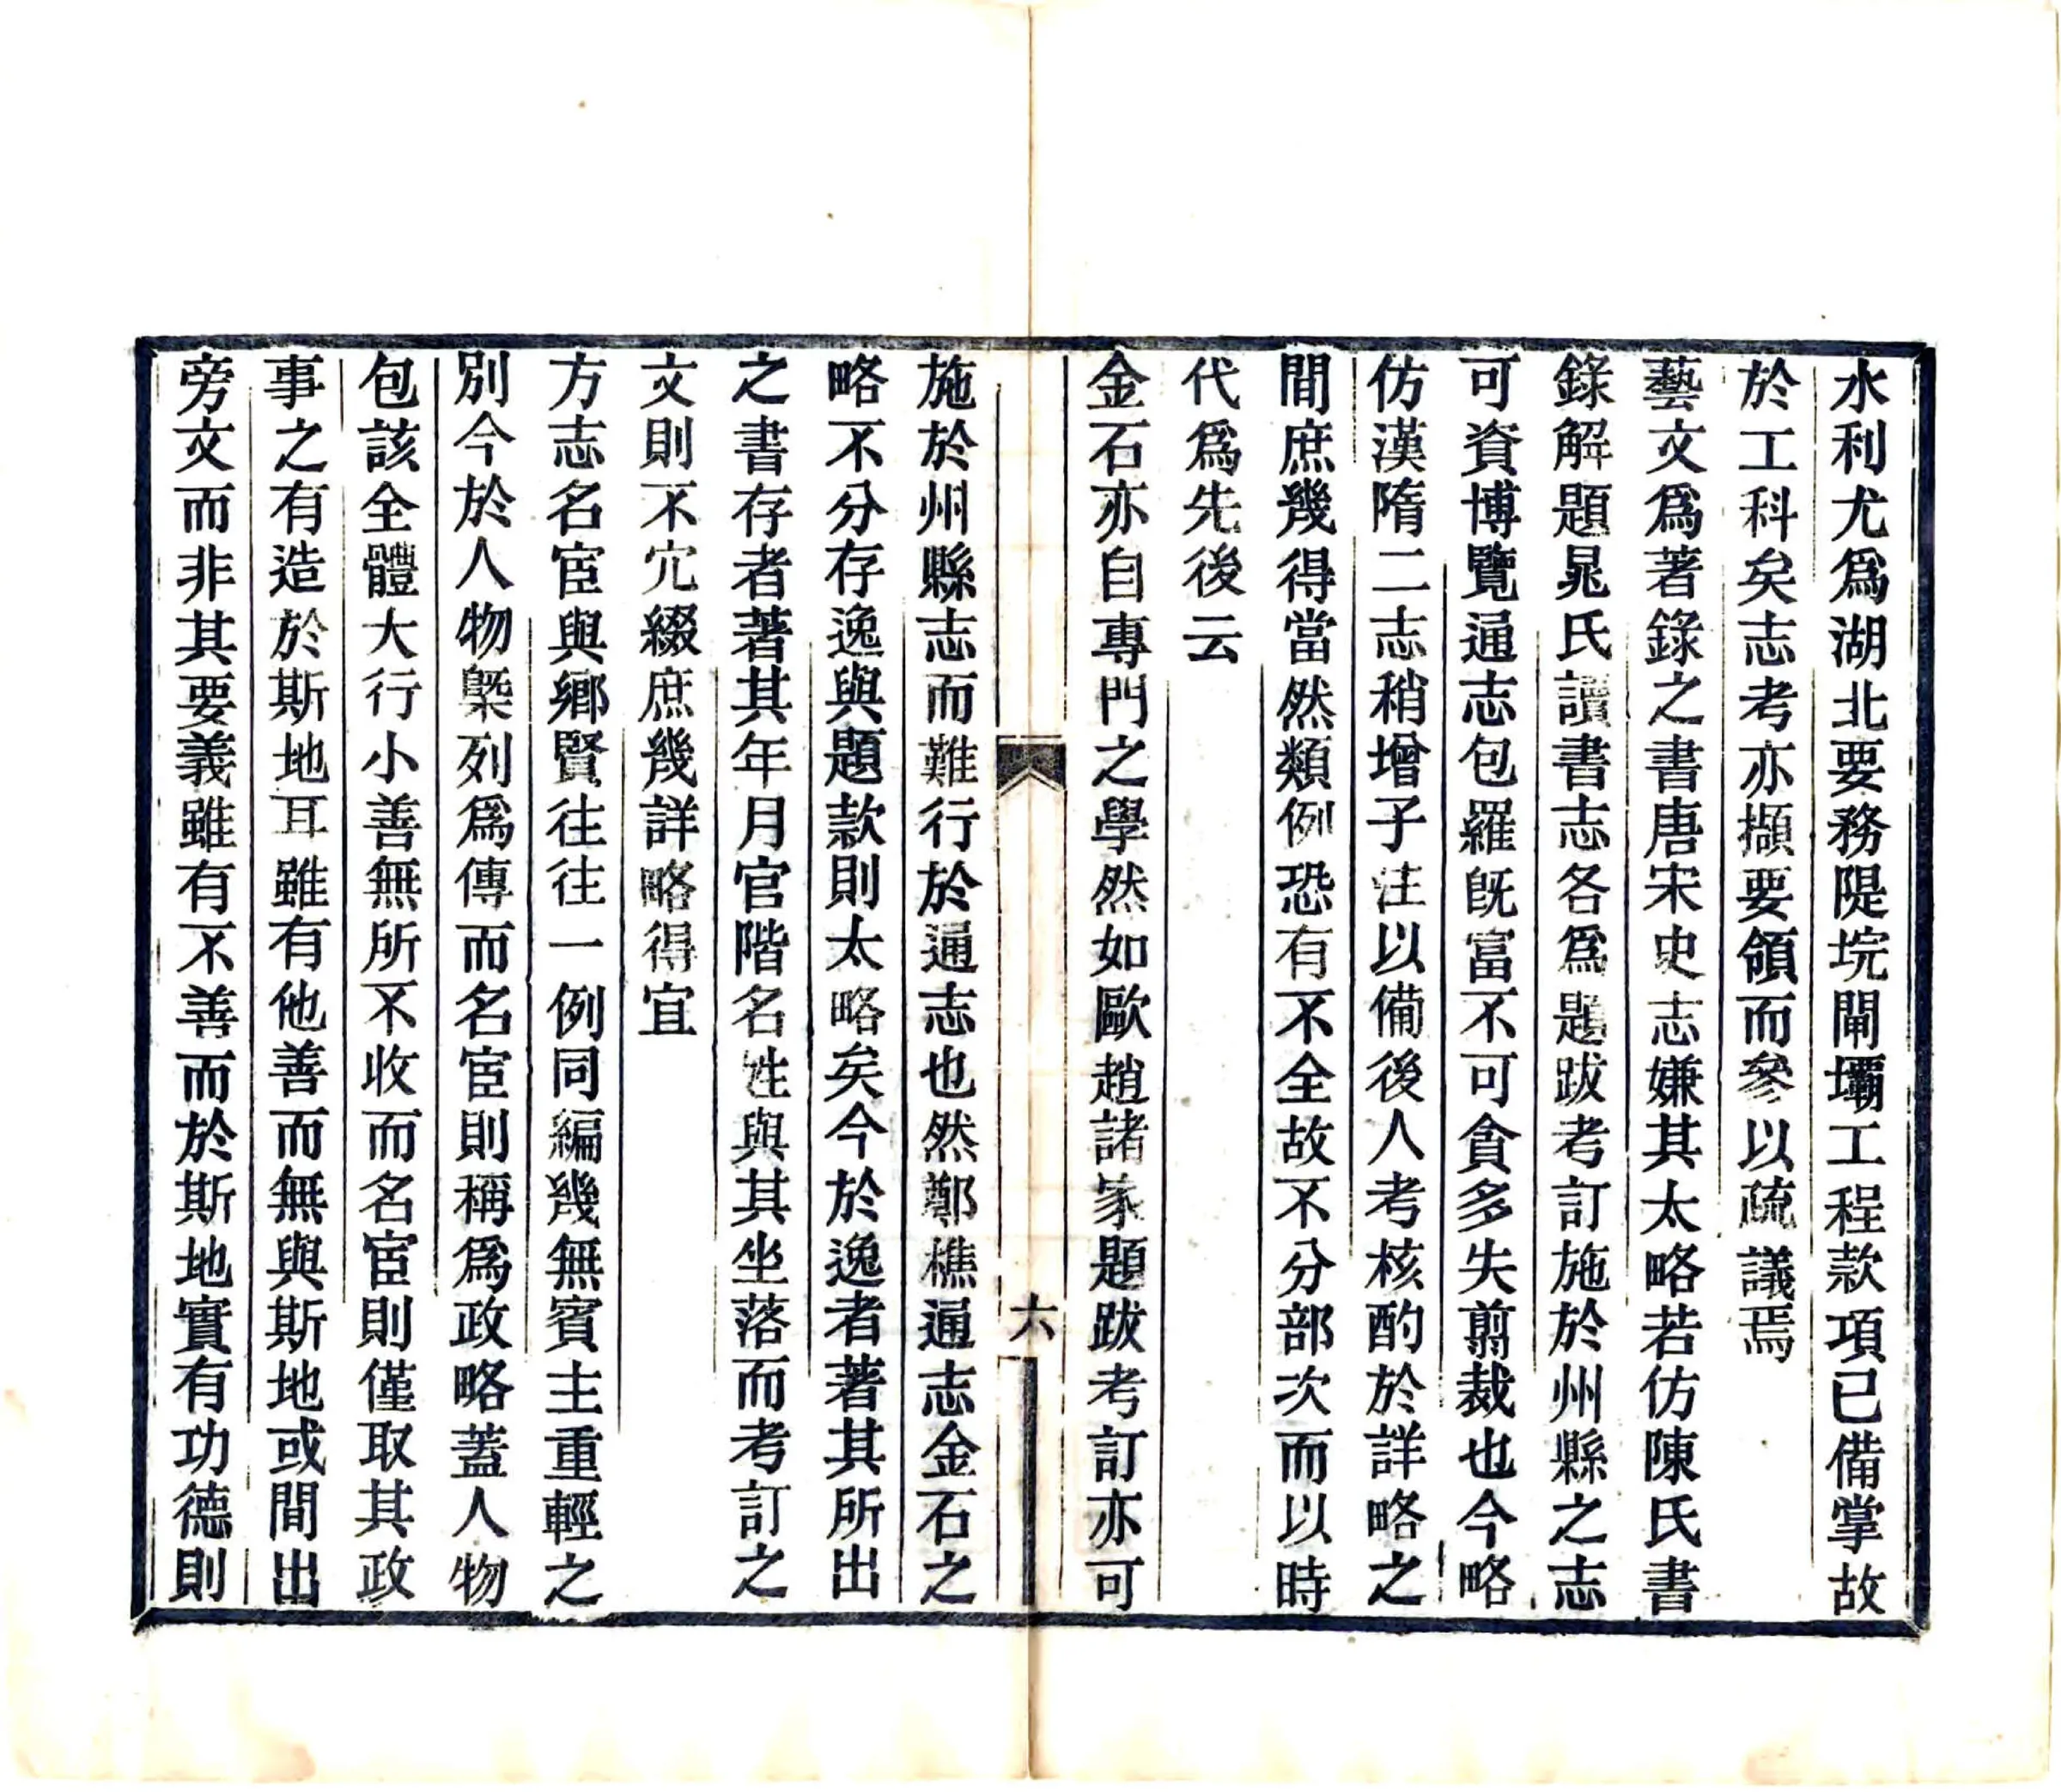 水利尤爲湖北要務隄垸閘壩工程款項已備掌故
於工科矣志考亦擷要領而參以疏議焉
藝文爲著錄之書唐宋史志嫌其太略若仿陳氏書
錄解題晁氏讀書志各爲題跋考訂施於州縣之志
可資博覽通志包羅旣富不可貪多失翦裁也今略
仿漢隋二志稍增子注以備後人考核酌於詳略之
間庶幾得當然類例恐有不全故不分部次而以時
代爲先後云
金石亦自專門之學然如歐趙諸家題跋考訂亦可
六
施於州縣志而難行於通志也然鄭樵通志金石之
略不分存逸與題款則太略矣今於逸者著其所出
之書存者著其年月官階名姓與其坐落而考訂之
文則不宂綴庶幾詳略得宜
方志名宦與鄉賢往往一例同編幾無賓主重輕之
別今於人物槩列爲傳而名宦則稱爲政略蓋人物
包該全體大行小善無所不收而名宦則僅取其政
事之有造於斯地耳雖有他善而無與斯地或間出
旁文而非其要義雖有不善而於斯地實有功德則